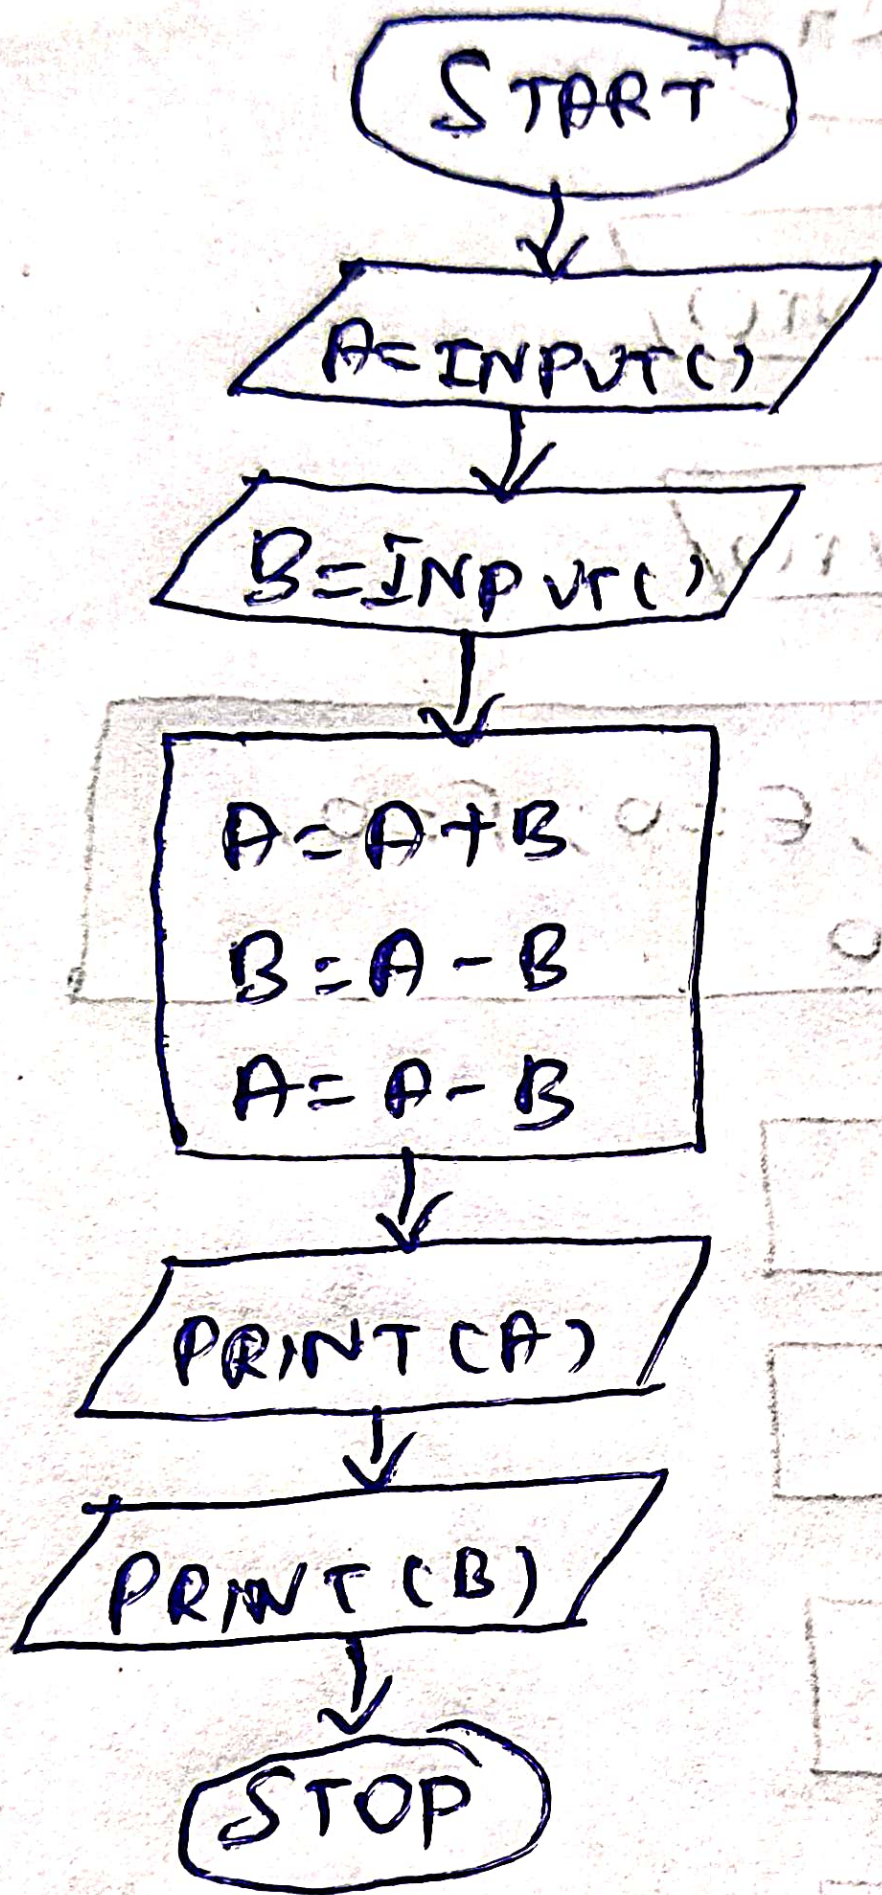 START
A=INPUT()
B=INPUT()
A=A+B
B=A-B
A=A-B
PRINT(A)
PRINT(B)
STOP